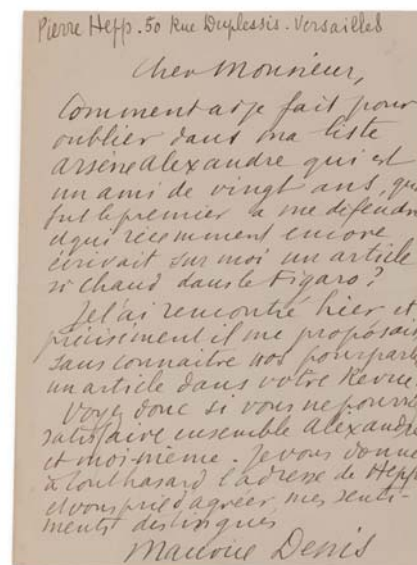 Pierre Hepp. 50 Rue Duplessis. Versailles
Cher Monsieur,
Comment ai je fait pour
oublier dans ma liste
Arsène Alexandre qui est
un ami de vingt ans, qui
fut le premier à me défendre
et qui récemment encore
écrivait sur moi un article
si chaud dans le Figaro?
Je l'ai rencontré hier et
précisément il me proposait
sans connaitre nos pourparle
un article dans votre Revue.
Voyez donc si vous ne pourrie
satisfaire ensemble Alexandre
et moi-même. Je vous donne
à tout hasard l'adresse de Hepp
et vous prie d'agréer, mes senti-
ments distingués
Maurice Denis